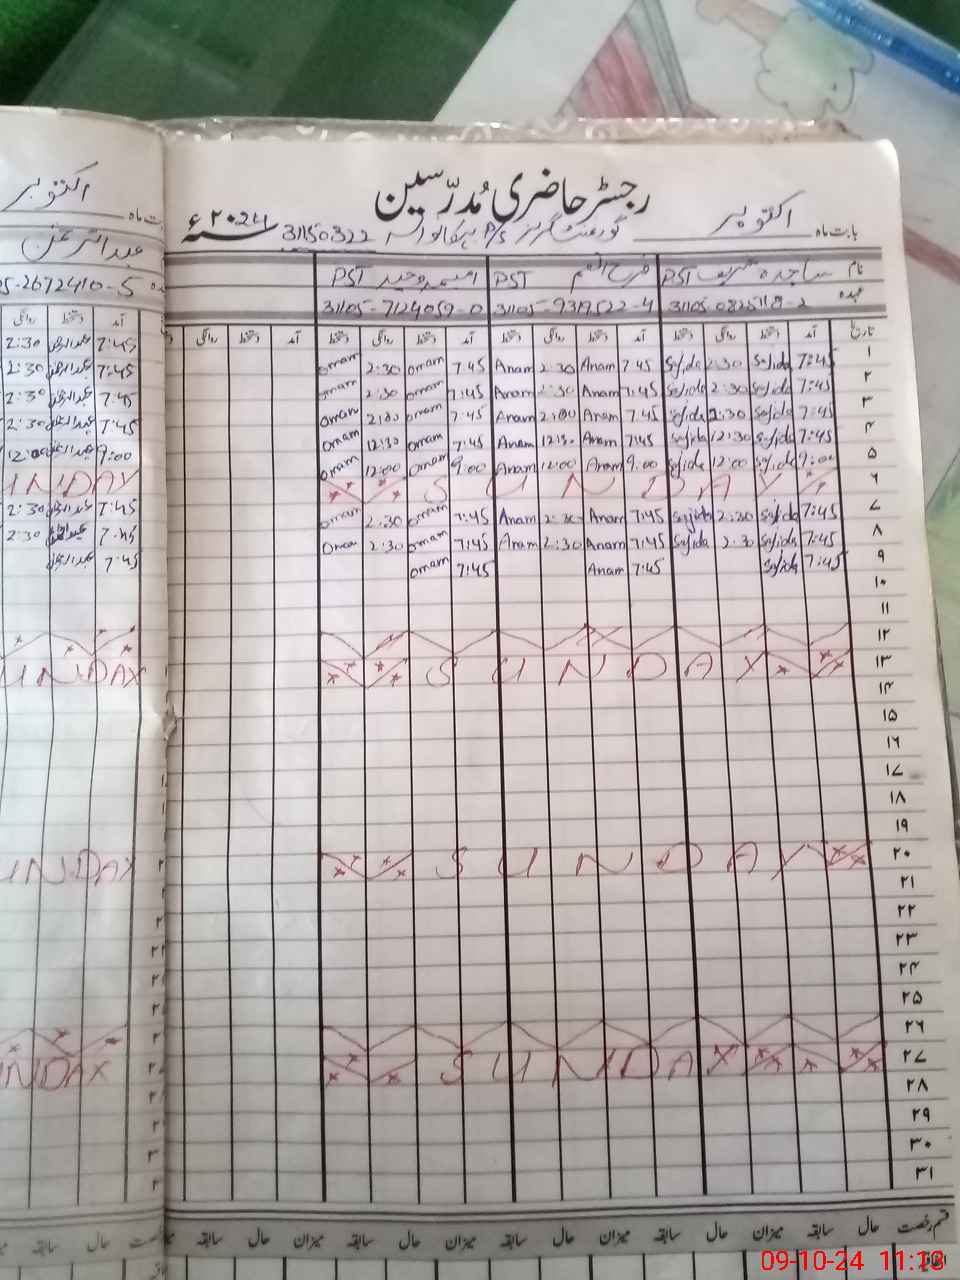 اکتوبر
رجسٹر حاضری مُدرّسین
بابت ماہ اکتوبر
گورنمنٹ گرلز P/S 31150322 ۲۰24ء
نام ساجدہ شریف PST فرح انعم PST PST
عہدہ 31105-0825118-2 31105-9319522-4 31105-7124059-0
05-2672410-5
تاریخ آمد دستخط روانگی دستخط آمد دستخط روانگی دستخط آمد دستخط روانگی دستخط آمد دستخط روانگی
آمد دستخط روانگی
۱ 7:45 Sajida 2:30 Sajida 7:45 Anam 2:30 Anam 7:45 omam 2:30 omam
۲ 7:45 Sajida 2:30 Sajida 7:45 Anam 2:30 Anam 7:45 omam 2:30 omam
۳ 7:45 Sajida 2:30 Sajida 7:45 Anam 2:00 Anam 7:45 omam 2:00 omam
۴ 7:45 Sajida 12:30 Sajida 7:45 Anam 12:30 Anam 7:45 omam 12:30 omam
۵ 9:00 Sajida 12:00 Sajida 9:00 Anam 12:00 Anam 9:00 omam 12:00 omam
۶ SUNDAY
۷ 7:45 Sajida 2:30 Sajida 7:45 Anam 2:30 Anam 7:45 omam 2:30 omam
۸ 7:45 Sajida 2:30 Sajida 7:45 Anam 2:30 Anam 7:45 omam 2:30 Omam
۹ 7:45 Sajida 7:45 Anam 7:45 omam
۱۰
۱۱
۱۲
۱۳ SUNDAY
۱۴
۱۵
۱۶
۱۷
۱۸
۱۹
۲۰ SUNDAY
۲۱
۲۲
۲۳
۲۴
۲۵
۲۶
۲۷ SUNDAY
۲۸
۲۹
۳۰
۳۱
7:45 2:30
7:45 2:30
7:45 2:30
7:45 2:30
9:00 12:00
UNDAY
7:45 2:30
7:45 2:30
7:45
UNDAY
UNDAY
UNDAY
قسم رخصت حال سابقہ میزان حال سابقہ میزان حال سابقہ میزان حال سابقہ
حال سابقہ
09-10-24 11:13